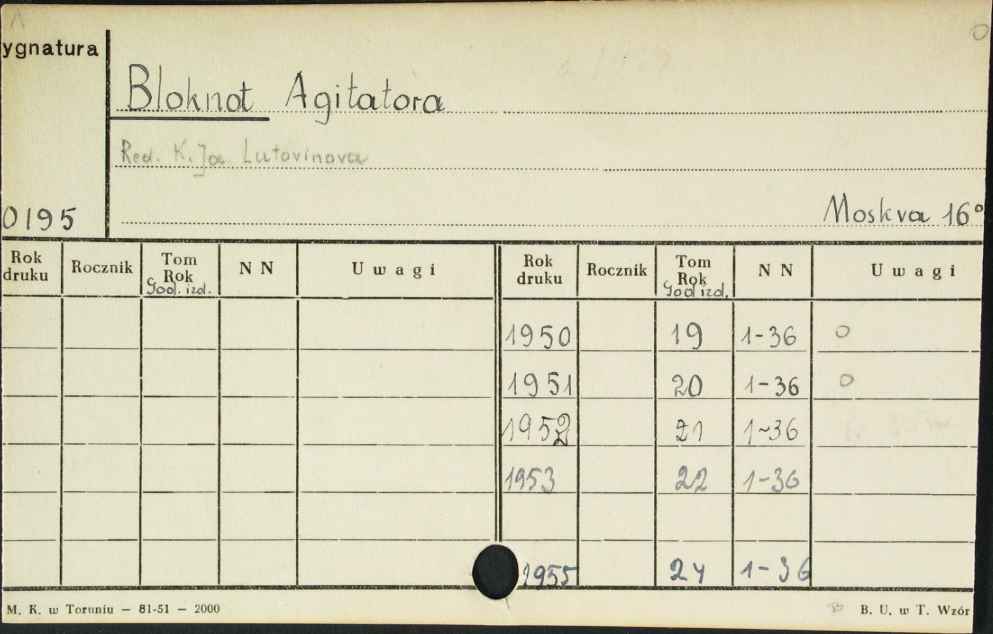 ygnatura
Bloknot Agitatora
Red. K. Ja. Lutovinova
0195
Moskva 16°
Rok druku Rocznik Tom Rok God. izd. N N Uwagi Rok druku Rocznik Tom Rok God izd. N N Uwagi
1950 19 1-36 o
1951 20 1-36 o
1952 21 1-36
1953 22 1-36
1955 24 1-36
M. K. w Toruniu — 81-51 — 2000
B. U. w T. Wzór